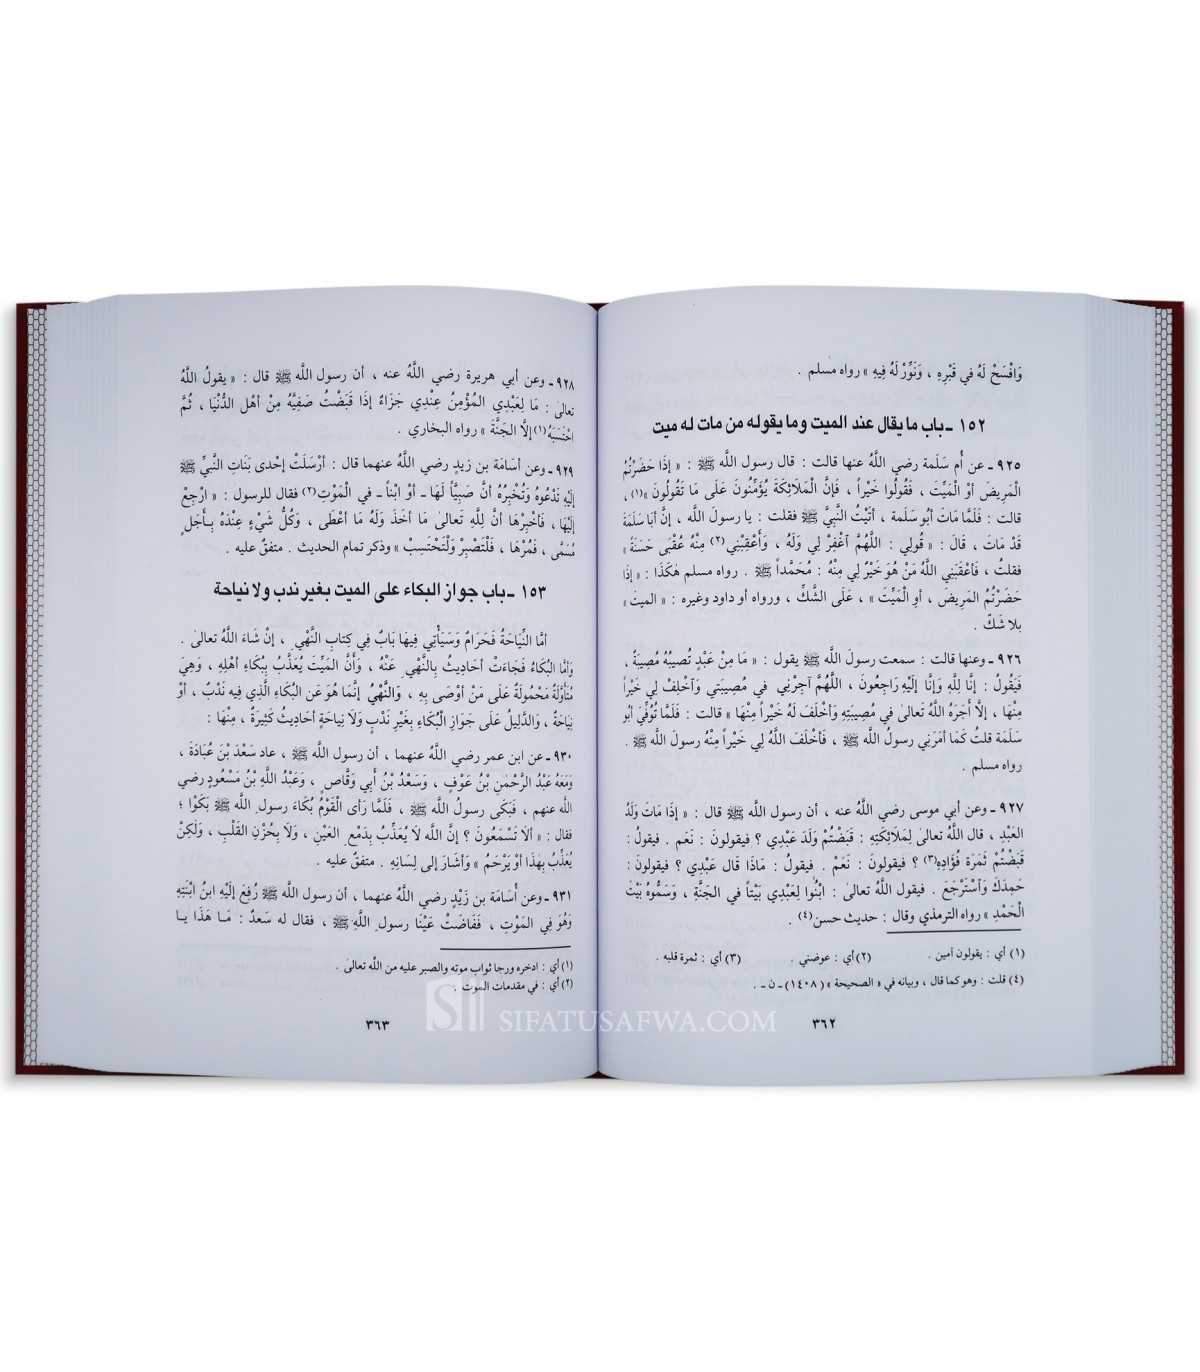 وَافْسَحْ لَهُ في قَبْرِهِ ، وَنَوِّرْ لَهُ فِيهِ » رواه مسلم .
١٥٢ ـ باب ما يقال عند الميت وما يقوله من مات له ميت
٩٢٥ ـ عن أُم سَلَمة رضي اللَّهُ عنها قالت : قال رسول اللَّه ﷺ : « إِذَا حَضَرْتُمُ
الْمَرِيضَ أَوْ الْمَيِّتَ ، فَقُولُوا خَيْراً ، فَإِنَّ الْمَلَائِكَةَ يُؤَمِّنُونَ عَلَى مَا تَقُولُونَ »(١) ،
قالت : فَلَمَّا مَاتَ أَبُو سَلَمة ، أَتَيْتُ النَّبِيَّ ﷺ فقلت : يا رسولَ اللَّه ، إِنَّ أَبَا سَلَمَةَ
قَدْ مَاتَ ، قَالَ : « قُولِي : اللَّهُمَّ اغْفِرْ لِي وَلَهُ ، وَأَعْقِبْنِي(٢) مِنْهُ عُقْبَى حَسَنَةً »
فقلتُ ، فَأَعْقَبَنِي اللَّهُ مَنْ هُوَ خَيْرٌ لِي مِنْهُ : مُحَمَّداً ﷺ . رواه مسلم هَكَذَا : « إِذَا
حَضَرْتُمُ المَرِيضَ ، أَوِ الْمَيِّتَ » ، عَلَى الشَّكِّ ، ورواه أبو داود وغيره : « الميتَ »
بلا شَكٍّ .
٩٢٦ ـ وعنها قالت : سمعت رسولَ اللَّه ﷺ يقول : « مَا مِنْ عَبْدٍ تُصِيبُهُ مُصِيبَةٌ ،
فَيَقُولُ : إِنَّا لِلَّهِ وَإِنَّا إِلَيْهِ رَاجِعُونَ ، اللَّهُمَّ آجِرْنِي في مُصِيبَتِي وَاخْلِفْ لِي خَيْراً
مِنْهَا ، إِلَّا أَجَرَهُ اللَّهُ تعالى في مُصِيبَتِهِ وَأَخْلَفَ لَهُ خَيْراً مِنْهَا » قالت : فَلَمَّا تُوُفِّيَ أَبُو
سَلَمة قلتُ كَمَا أَمَرَنِي رسولُ اللَّه ﷺ ، فَأَخْلَفَ اللَّهُ لي خَيْراً مِنْهُ رسولَ اللَّه ﷺ .
رواه مسلم .
٩٢٧ ـ وعن أبي موسى رضي اللَّهُ عنه ، أن رسول اللَّه ﷺ قال : « إِذَا مَاتَ وَلَدُ
العَبْدِ ، قال اللَّهُ تعالى لِمَلَائِكَتِهِ : قَبَضْتُمْ وَلَدَ عَبْدِي ؟ فيقولون : نَعَم . فيقولُ :
قَبَضْتُمْ ثَمَرَةَ فُؤَادِهِ(٣) ؟ فيقولون : نَعَمْ . فيقولُ : مَاذَا قال عَبْدِي ؟ فيقولون :
حَمِدَكَ وَاسْتَرْجَعَ . فيقول اللَّهُ تعالى : ابْنُوا لِعَبْدِي بَيْتاً في الجَنَّةِ ، وَسَمُّوهُ بَيْتَ
الْحَمْدِ » رواه الترمذي وقال : حديث حسن(٤) .
(١) أي : يقولون آمين . (٢) أي : عوضني . (٣) أي : ثمرة قلبه .
(٤) قلت : وهو كما قال ، وبيانه في « الصحيحة » (١٤٠٨) ـ ن ـ .
٣٦٢
٩٢٨ ـ وعن أبي هريرة رضي اللَّهُ عنه ، أن رسول اللَّه ﷺ قال : « يقولُ اللَّهُ
تعالى : مَا لِعَبْدِي المُؤْمِنِ عِنْدِي جَزَاءٌ إِذَا قَبَضْتُ صَفِيَّهُ مِنْ أَهْلِ الدُّنْيَا ، ثُمَّ
احْتَسَبَهُ(١) إِلَّا الجَنَّةَ » رواه البخاري .
٩٢٩ ـ وعن أسَامَة بن زَيدٍ رضي اللَّهُ عنهما قال : أَرْسَلَتْ إِحْدى بَنَاتِ النَّبِيِّ ﷺ
إِلَيْهِ تَدْعُوهُ وَتُخْبِرُهُ أَنَّ صَبِيًّا لَهَا ـ أَوْ ابْناً ـ في الْمَوْتِ(٢) فقال للرسول : « ارْجِعْ
إِلَيْهَا ، فَأَخْبِرْهَا أَنَّ لِلَّهِ تعالى مَا أَخَذَ وَلَهُ مَا أَعْطَى ، وَكُلُّ شَيْءٍ عِنْدَهُ بِأَجَلٍ
مُسَمًّى ، فَمُرْهَا ، فَلْتَصْبِرْ وَلْتَحْتَسِبْ » وذكر تمام الحديث . متفقٌ عليه .
١٥٣ ـ باب جواز البكاء على الميت بغير ندب ولا نياحة
أمَّا النِّيَاحَةُ فَحَرَامٌ وَسَيَأْتِي فِيهَا بَابٌ فِي كِتَابِ النَّهْيِ ، إِنْ شَاءَ اللَّهُ تعالى .
وَأَمَّا البُكَاءُ فَجَاءَتْ أَحَادِيثُ بِالنَّهْيِ عَنْهُ ، وَأَنَّ المَيِّتَ يُعَذَّبُ بِبُكَاءِ أَهْلِهِ ، وَهِيَ
مُتَأَوَّلَةٌ مَحْمُولَةٌ عَلَى مَنْ أَوْصَى بِهِ ، وَالنَّهْيُ إِنَّمَا هُوَ عَنِ البُكَاءِ الَّذِي فِيهِ نَدْبٌ ، أَوْ
نِيَاحَةٌ ، وَالدَّلِيلُ عَلَى جَوَازِ الْبُكَاءِ بِغَيْرِ نَدْبٍ وَلَا نِيَاحَةٍ أَحَادِيثُ كَثِيرَةٌ ، مِنْهَا :
٩٣٠ ـ عن ابن عمر رضي اللَّهُ عنهما ، أن رسول اللَّه ﷺ ، عاد سَعْدَ بْنَ عُبَادَةَ ،
وَمَعَهُ عَبْدُ الرَّحْمَنِ بْنُ عَوْفٍ ، وَسَعْدُ بْنُ أَبِي وَقَّاصٍ ، وَعَبْدُ اللَّهِ بْنُ مَسْعُودٍ رضي
اللَّه عنهم ، فَبَكَى رسولُ اللَّه ﷺ ، فَلَمَّا رَأَى الْقَوْمُ بُكَاءَ رسولِ اللَّه ﷺ بَكَوْا ؛
فقال : « أَلَا تَسْمَعُونَ ؟ إِنَّ اللَّه لَا يُعَذِّبُ بِدَمْعِ العَيْنِ ، وَلَا بِحُزْنِ القَلْبِ ، وَلَكِنْ
يُعَذِّبُ بِهَذَا أَوْ يَرْحَمُ » وَأَشَارَ إِلَى لِسَانِهِ . متفقٌ عليه .
٩٣١ ـ وعن أُسَامَة بن زَيْدٍ رضي اللَّهُ عنهما ، أن رسول اللَّه ﷺ رُفِعَ إِلَيْهِ ابنُ ابْنَتِهِ
وَهُوَ فِي المَوْتِ ، فَفَاضَتْ عَيْنَا رسولِ اللَّهِ ﷺ ، فقال له سَعْدٌ : مَا هَذَا يا
(١) أي : ادخره ورجا ثواب موته والصبر عليه من اللَّه تعالى .
(٢) أي : في مقدمات الموت .
٣٦٣
SIFATUSAFWA.COM